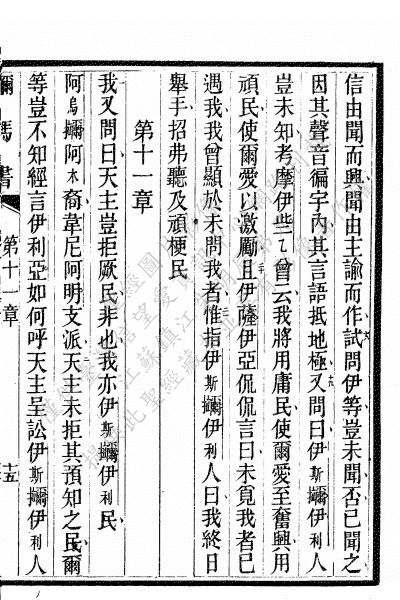 信由聞而興聞由主諭而作試問伊等豈未聞否已聞之
因其聲音徧宇內其言語抵地極又問曰伊斯攡伊利人
豈未知考摩伊些乀曾云我將用庸民使爾愛至奮興用
頑民使爾愛以激勵且伊薩伊亞侃侃言曰未覓我者已
遇我我曾顯於未問我者惟指伊斯攡伊利人曰我終日
舉手招弗聽及頑梗民
第十一章
我又問曰天主豈拒厥民非也我亦伊斯攡伊利民
阿烏攡阿木裔韋尼阿明支派天主未拒其預知之民爾
等豈不知經言伊利亞如何呼天主呈訟伊斯攡伊利人
第十一章
十五